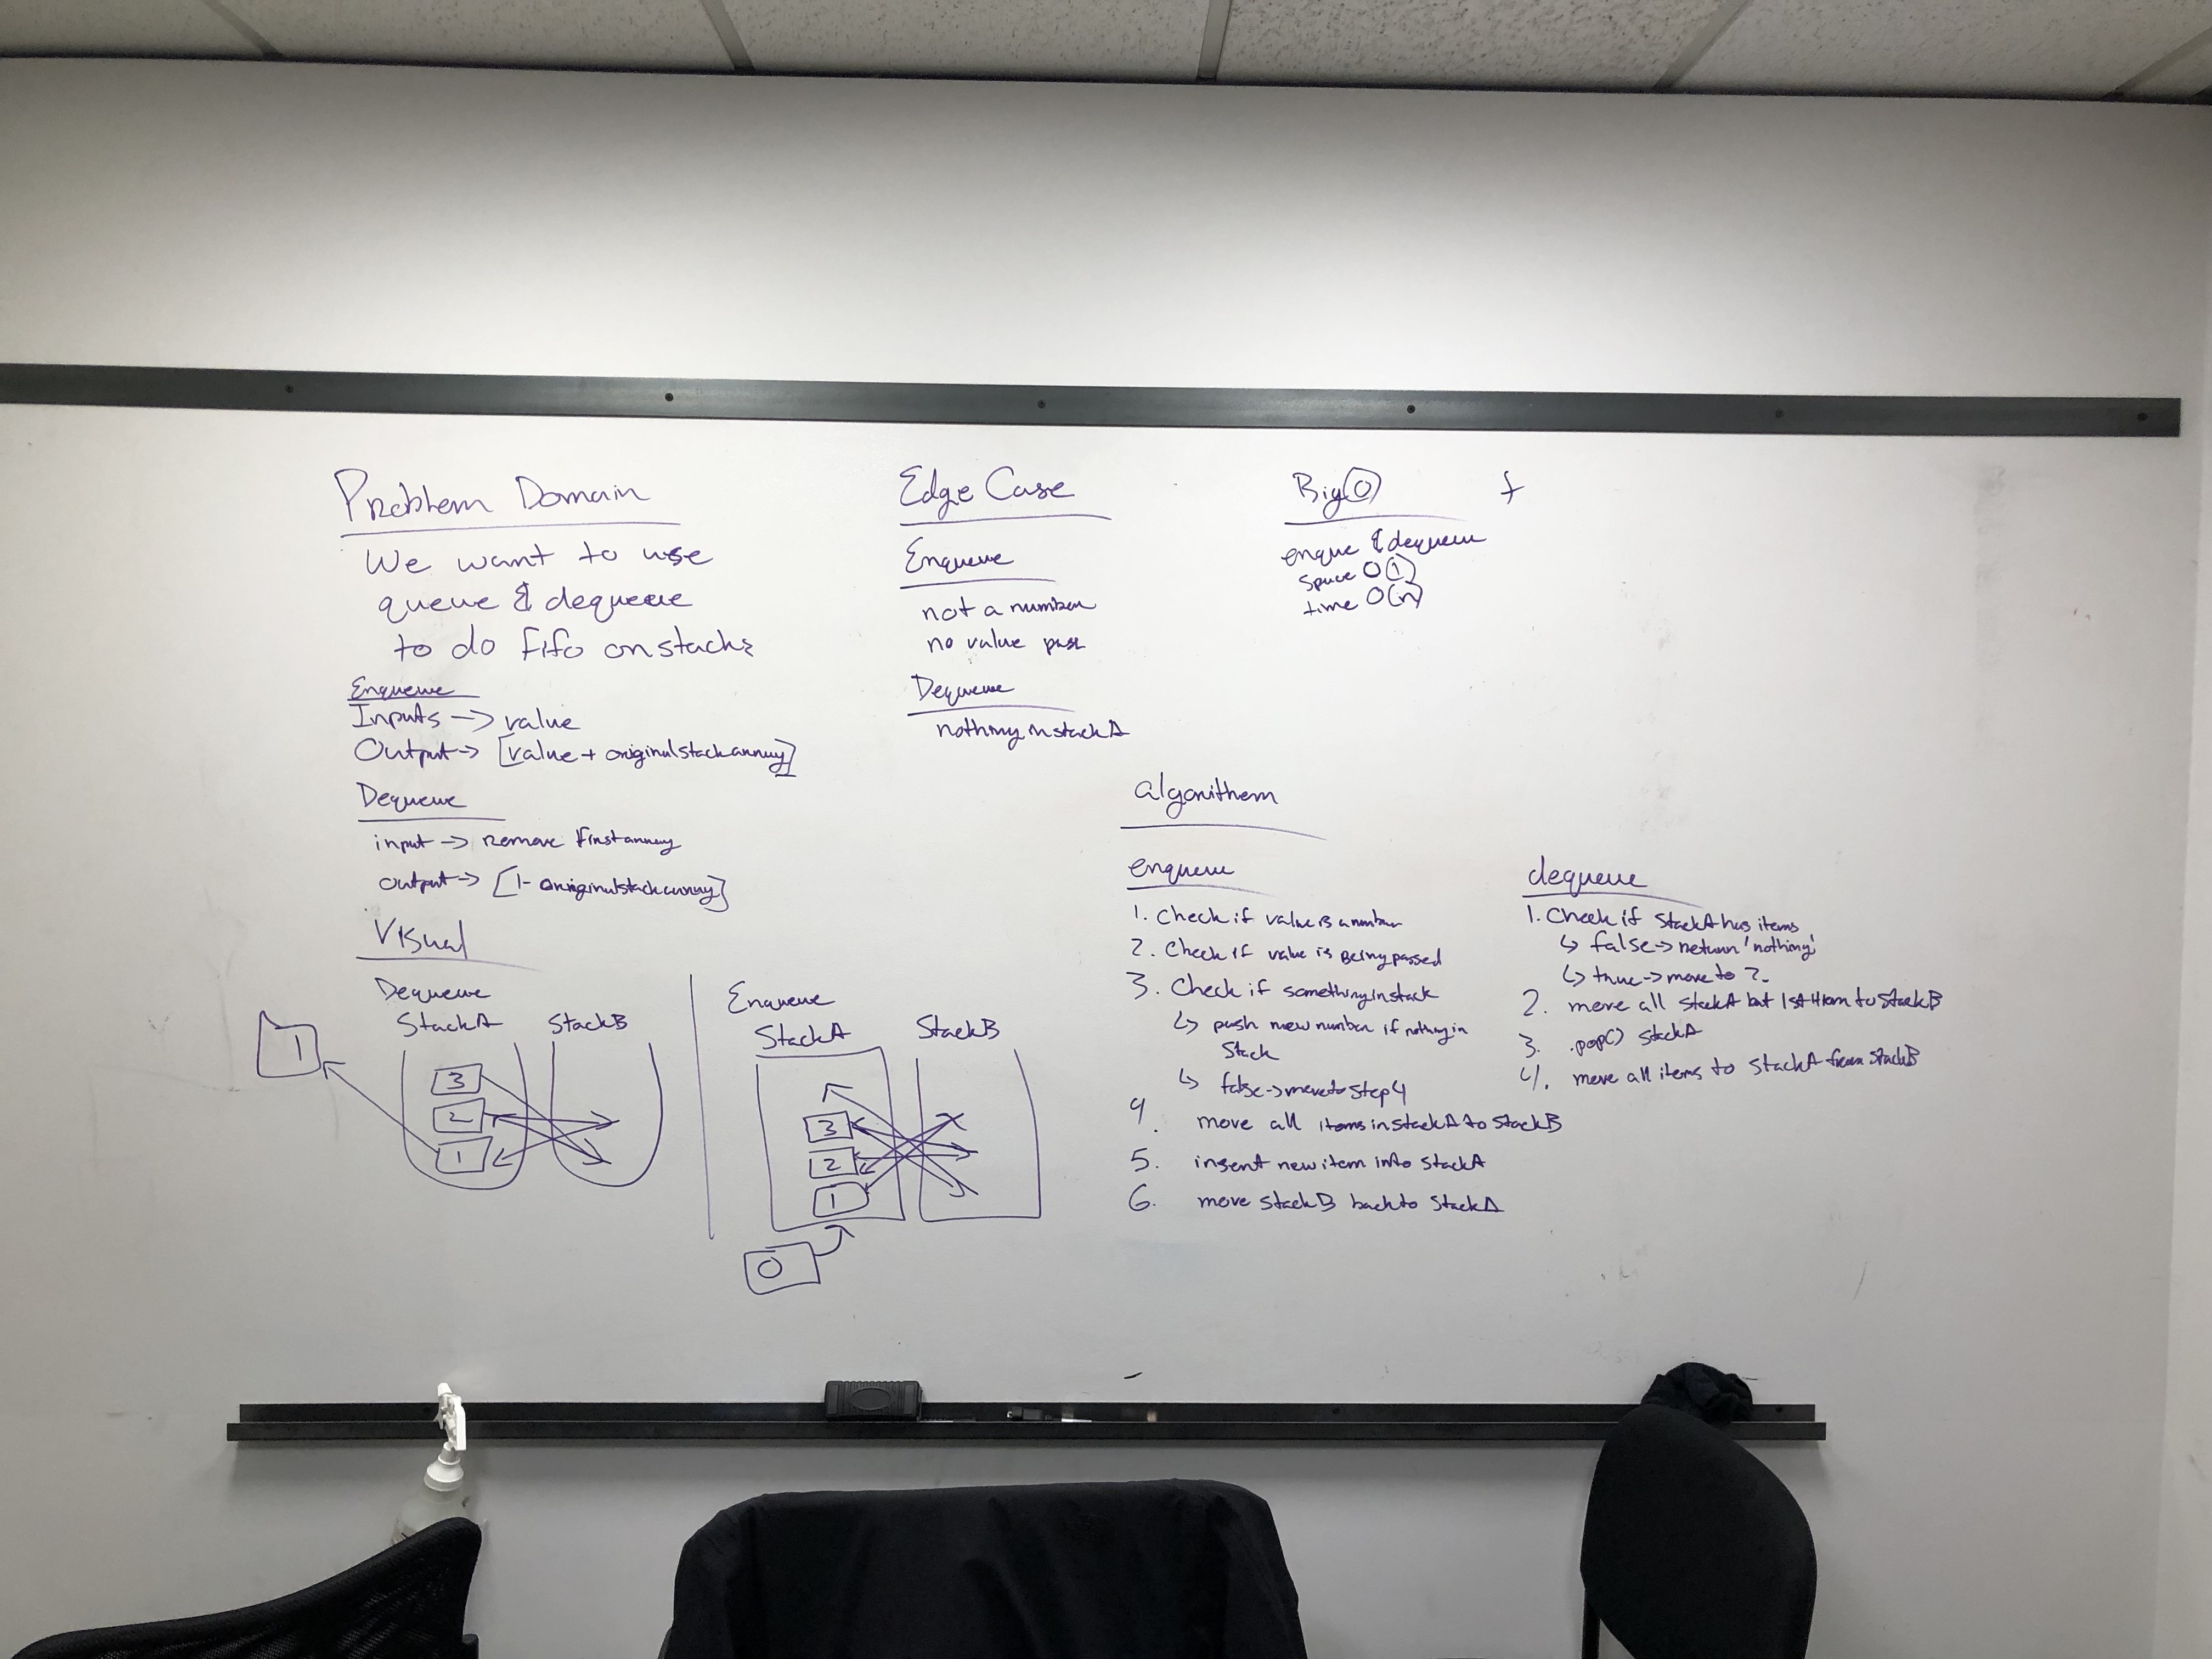 Problem Domain
We want to use
queue & dequeue
to do fifo on stacks
Enqueue
Inputs -> value
Output -> [value + originalstackarray]
Dequeue
input -> remove firstarray
output -> [1- originalstackarray]
Visual
Dequeue
StackA StackB
1
3
2
1
Enqueue
StackA StackB
3
2
1
0
Edge Case
Enqueue
not a number
no value pass
Dequeue
nothing in stackA
Big O
enque & dequeue
space O(1)
time O(n)
algorithem
enqueue
1. Check if value is a number
2. Check if value is Being passed
3. Check if something in stack
↳ push new number if nothing in
Stack
↳ false -> move to step 4
4. move all items in stackA to stackB
5. insert new item into stackA
6. move stackB back to stackA
dequeue
1. Check if stackA has items
↳ false -> return 'nothing'
↳ true -> move to 2.
2. move all stackA but 1st item to stackB
3. .pop() stackA
4. move all items to stackA from stackB